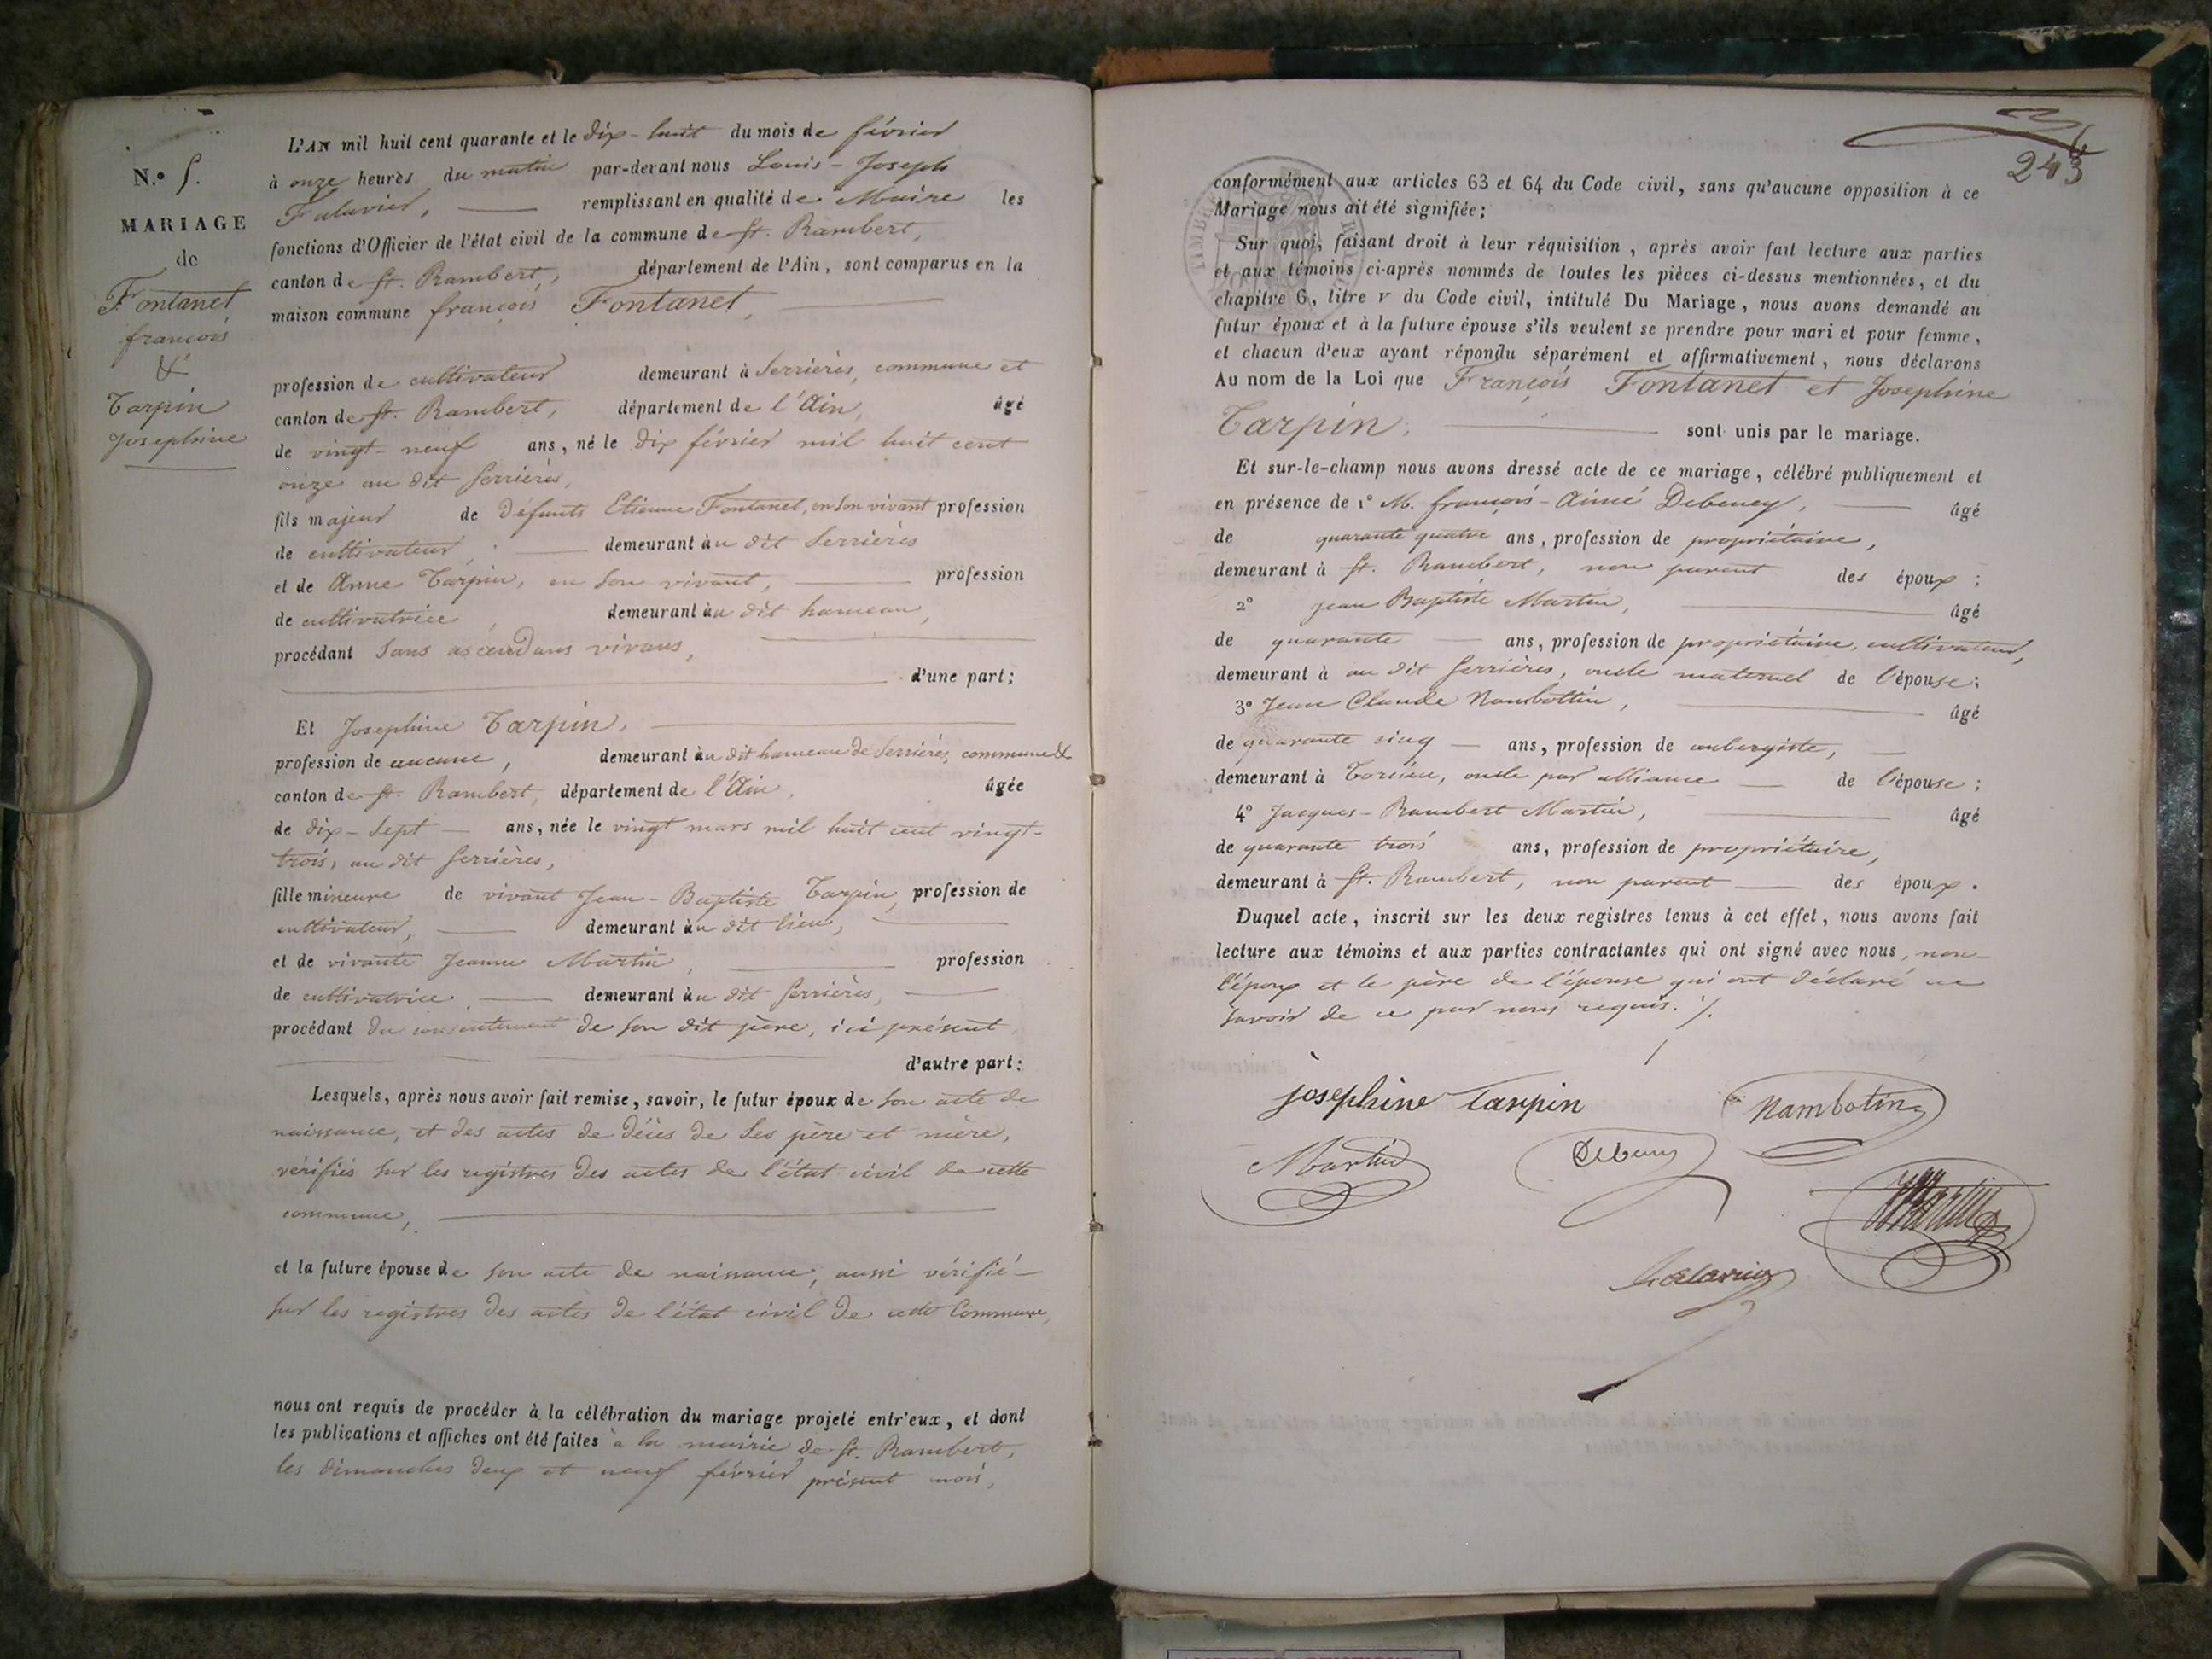 N.° 5.
MARIAGE
de
Fontanet
françois
&
Tarpin
Josephine
L'AN mil huit cent quarante et le dix-huit du mois de février
à onze heures du matin par-devant nous Louis-Joseph
Falavier, remplissant en qualité de Maire les
fonctions d'Officier de l'état civil de la commune de St. Rambert,
canton de St. Rambert, département de l'Ain, sont comparus en la
maison commune françois Fontanet,
profession de cultivateur demeurant à Serrières, commune et
canton de St. Rambert, département de l'Ain, âgé
de vingt-neuf ans, né le dix février mil huit cent
onze au dit Serrières,
fils majeur de défunts Etienne Fontanet, en son vivant profession
de cultivateur demeurant au dit Serrières
et de Anne Tarpin, en son vivant, profession
de cultivatrice, demeurant au dit hameau,
procédant sans ascendans vivans,
d'une part;
Et Josephine Tarpin,
profession de aucune, demeurant au dit hameau de Serrières, commune &
canton de St. Rambert, département de l'Ain, âgée
de dix-sept ans, née le vingt mars mil huit cent vingt-
trois, au dit Serrières,
fille mineure de vivant Jean-Baptiste Tarpin, profession de
cultivateur, demeurant au dit lieu,
et de vivante Jeanne Martin, profession
de cultivatrice, demeurant au dit Serrières,
procédant du consentement de son dit père, ici présent
d'autre part:
Lesquels, après nous avoir fait remise, savoir, le futur époux de son acte de
naissance, et des actes de décès de ses père et mère,
vérifiés sur les registres des actes de l'état civil de cette
commune,
et la future épouse de son acte de naissance, aussi vérifié
sur les registres des actes de l'état civil de cette Commune,
nous ont requis de procéder à la célébration du mariage projeté entr'eux, et dont
les publications et affiches ont été faites à la mairie de St. Rambert,
les dimanches deux et neuf février présent mois,
243
conformément aux articles 63 et 64 du Code civil, sans qu'aucune opposition à ce
Mariage nous ait été signifiée;
Sur quoi, faisant droit à leur réquisition, après avoir fait lecture aux parties
et aux témoins ci-après nommés de toutes les pièces ci-dessus mentionnées, et du
chapitre 6, litre v du Code civil, intitulé Du Mariage, nous avons demandé au
futur époux et à la future épouse s'ils veulent se prendre pour mari et pour femme,
et chacun d'eux ayant répondu séparément et affirmativement, nous déclarons
Au nom de la Loi que François Fontanet et Josephine
Tarpin, sont unis par le mariage.
Et sur-le-champ nous avons dressé acte de ce mariage, célébré publiquement et
en présence de 1° M. françois-Aimé Debeney, âgé
de quarante quatre ans, profession de propriétaire,
demeurant à St. Rambert, non parent des époux;
2° Jean Baptiste Martin, âgé
de quarante ans, profession de propriétaire, cultivateur,
demeurant à au dit Serrières, oncle maternel de l'épouse;
3° Jean Claude Nambottin, âgé
de quarante cinq ans, profession de aubergiste,
demeurant à Torcieu, oncle par alliance de l'épouse;
4° Jacques-Rambert Martin, âgé
de quarante trois ans, profession de propriétaire,
demeurant à St. Rambert, non parent des époux.
Duquel acte, inscrit sur les deux registres tenus à cet effet, nous avons fait
lecture aux témoins et aux parties contractantes qui ont signé avec nous, non
l'époux et le père de l'épouse qui ont déclaré ne
savoir de ce par nous requis. /.
josephine Tarpin
Nambotin
Martin
Debeney
Martin
Falavier